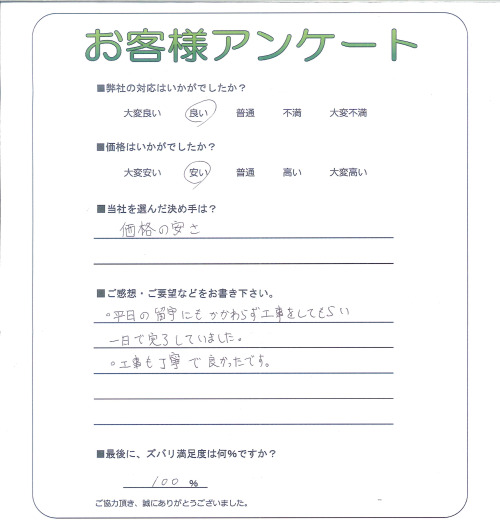 お客様アンケート
■弊社の対応はいかがでしたか？
大変良い 良い 普通 不満 大変不満
■価格はいかがでしたか？
大変安い 安い 普通 高い 大変高い
■当社を選んだ決め手は？
価格の安さ
■ご感想・ご要望などをお書き下さい。
○平日の留守にもかかわらず工事をしてもらい
一日で完了していました。
○工事も丁寧で良かったです。
■最後に、ズバリ満足度は何％ですか？
100 ％
ご協力頂き、誠にありがとうございました。